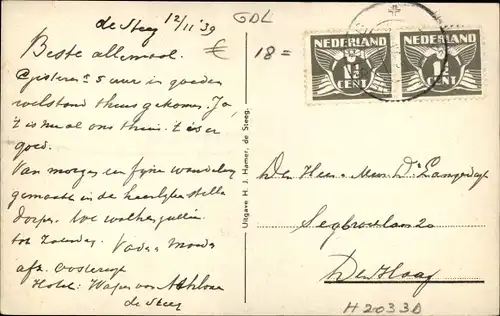 de Steeg 12/11 '39
GDL
€
18 =
Beste allemaal.
Gisteren 5 uur in goeden
welstand thuis gekomen. Ja,
't is nu al ons thuis. 't is er
goed.
Van morgen een fijne wandeling
gemaakt in de heerlijke stille
dorpen. We wachten jullie
tot Zaterdag. Vader Moeder
afz. Oosterwijk
Hotel: Wapen van Athlone
de Steeg
Uitgave H. J. Hamer, de Steeg.
NEDERLAND
1½
CENT
NEDERLAND
1½
CENT
Den Heer en Mevr. Ds
Segbroeklaan 20
Den Haag
H2033D